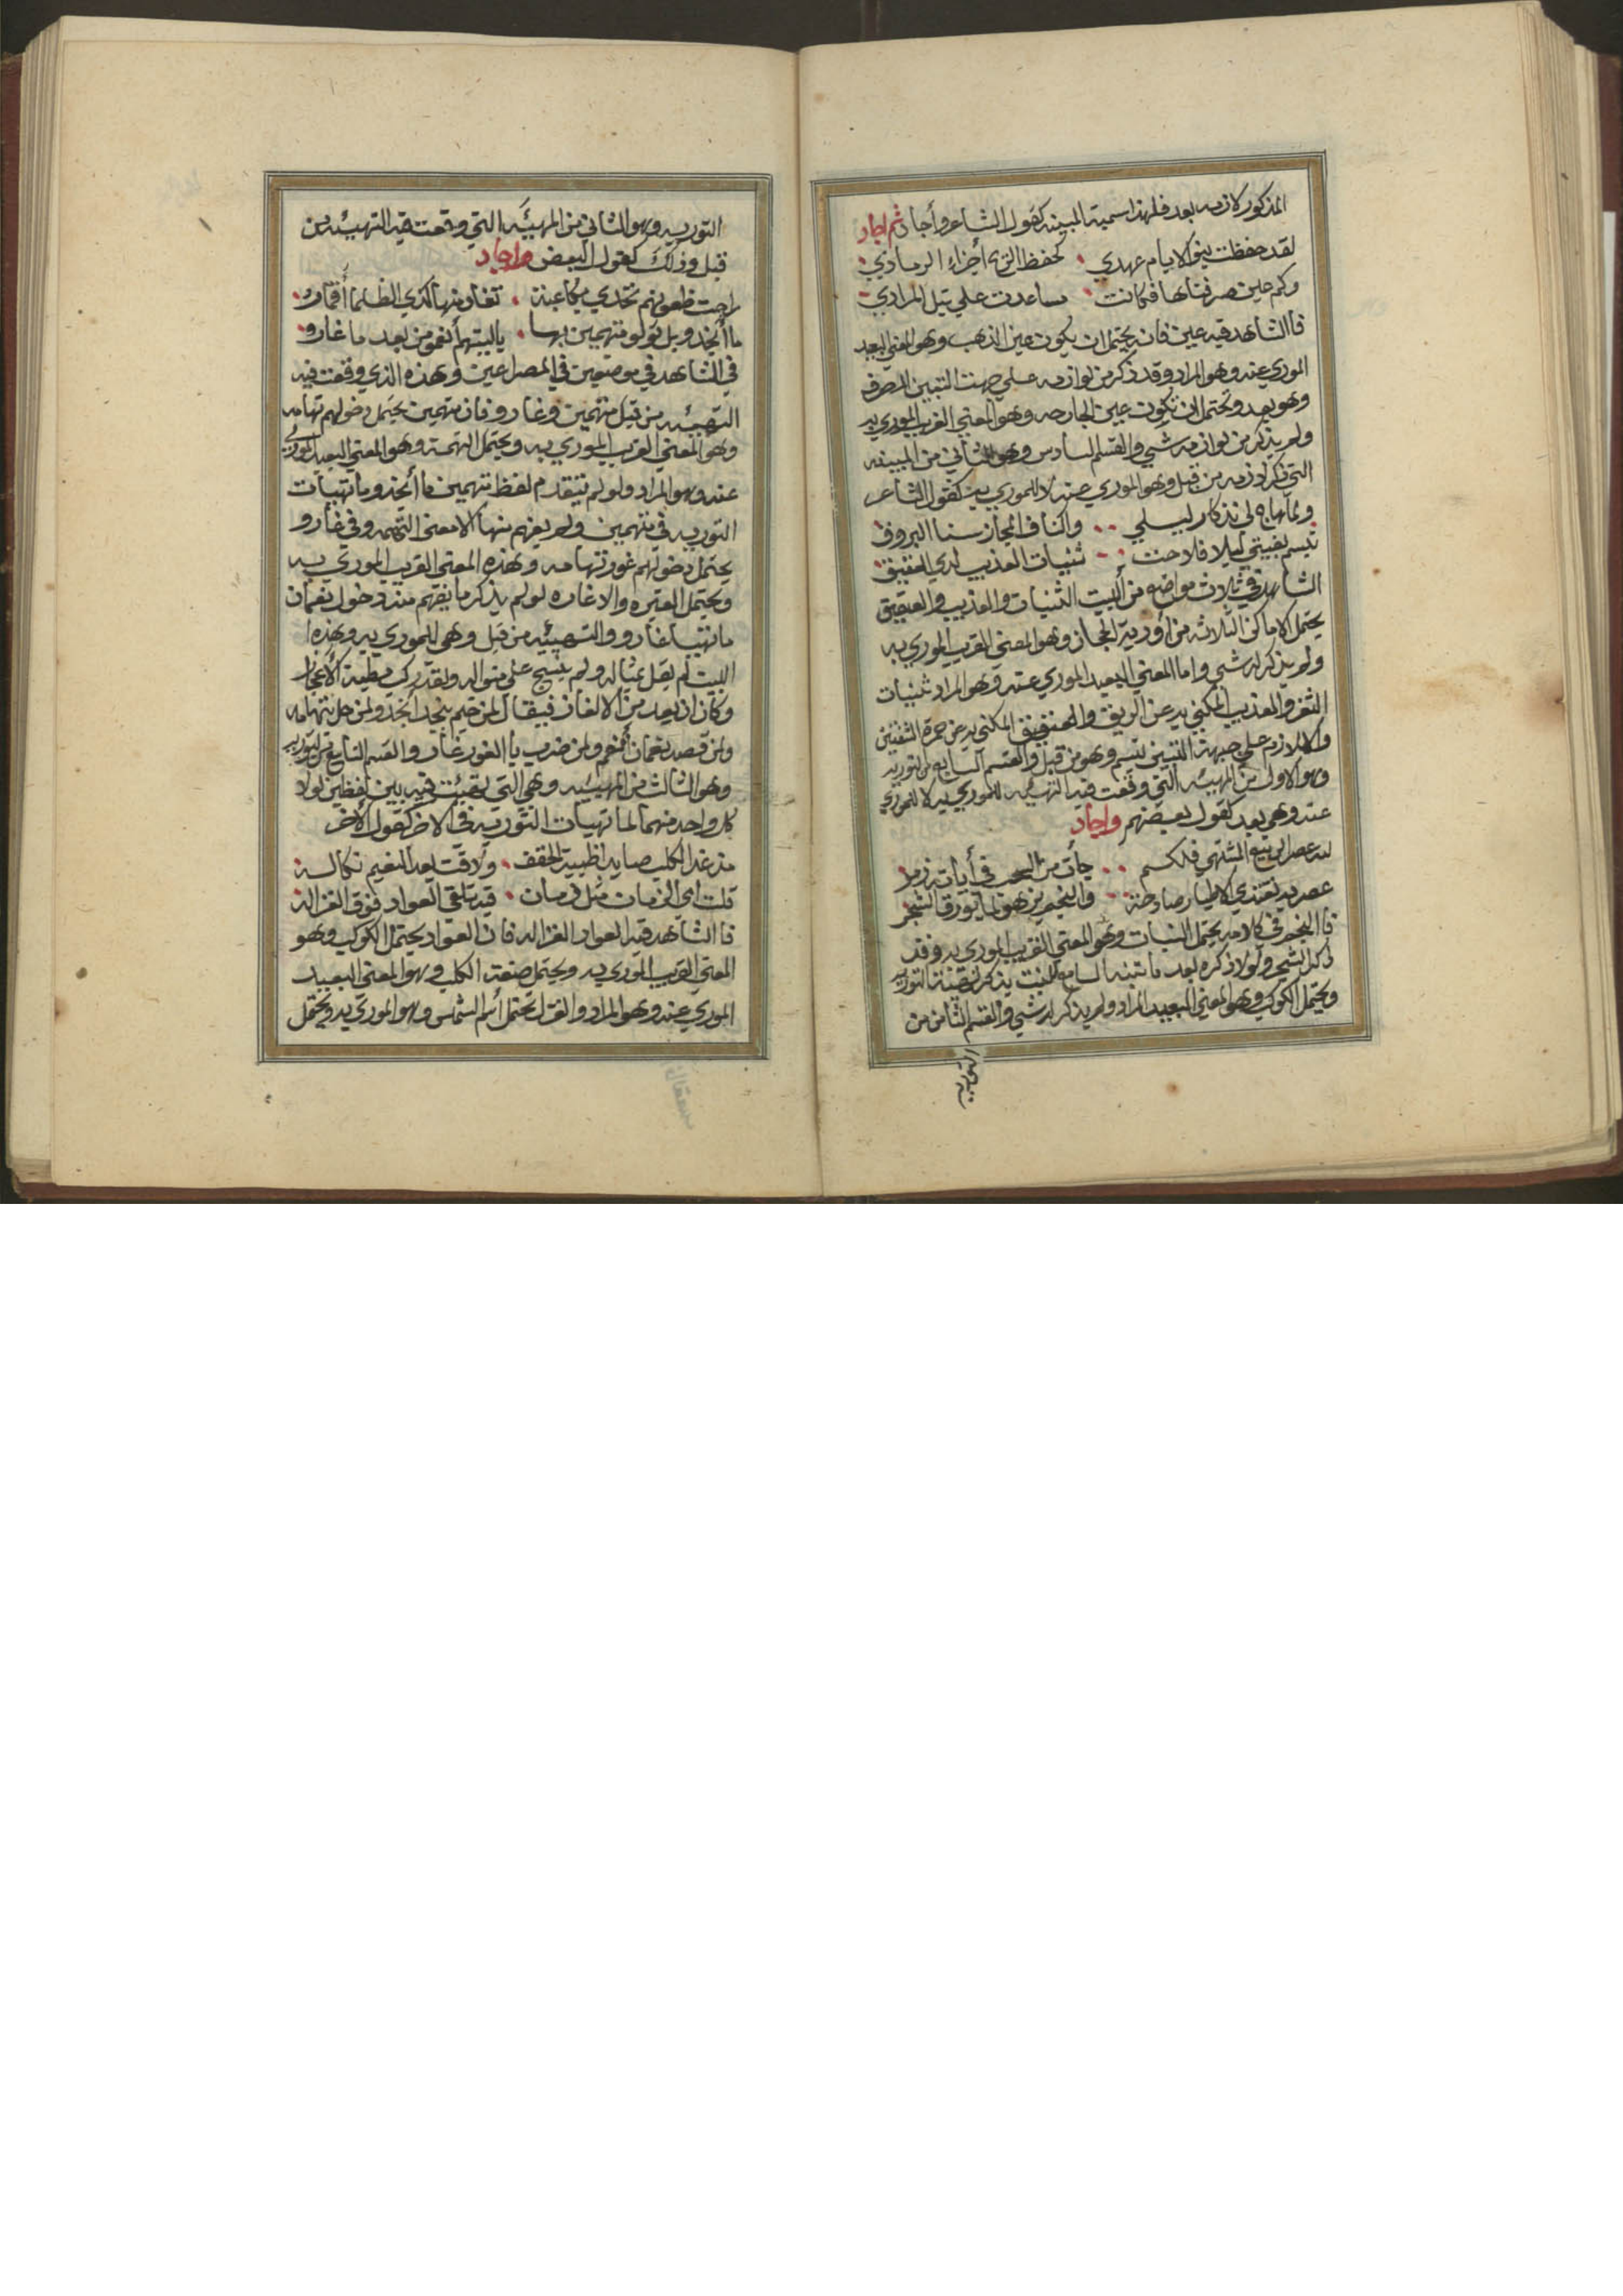 المذكور لازمه بعد فلهذا سمية المبينه كقول الشاعر وأجاد ثم اجاد
لقد حفظت بنو الايام عهدي كحفظ أجزاء الرمادي
وكم عين صرفناها فكانت مساعدت علي نيل المرادي
فاالشاهد فيه عين فان يحتمل ان يكون عين الذهب وهو المعني البعيد
الموري عنه وهو المراد وقد ذكر من لوازمه علي جهت التبين الصرف
وهو بعد ويحتمل ان تكون عين الجارحه وهو المعني القريب الموري به
ولم يذكر من لوازمه شي والقسم السادس وهو الثاني من المبينه
التي ذكر لازمه من قبل وهو الموري عنه لا للموري به كقول الشاعر
ولما هاج لي تذكار ليلي واكناف الحجاز سنا البروق
تبسم ليلا فلاحت ثنيات العذيب لدي العقيق
الشاهد في ثلاث مواضع من البيت الثنيات والعذيب والعقيق
يحتمل الاماكن الثلاثه من أودية الحجاز وهو المعني القريب الموري به
ولم يذكر له شي واما المعني البعيد الموري عنه وهو المراد ثنيات
الثغر والعذيب المكني به عن الريق والعقيق المكني به عن حمرة الشفتين
والملازم علي جهة التبين تبسم وهو من قبل والقسم السابع من التوريه
وهو الاول من المهيئه التي وقعت فيه التهئيه للموري به لا للموري
عنه وهي بعد كقول بعضهم واجاد
لله عصر الربيع المشتهي فلكم جأت من السحب في أياته زمر
عصر به تغتدي الاطيار صادحة والنجم يزهو لما يورق الشجر
فاالنجم في كلامه يحتمل النبات وهو المعني القريب الموري به وقد
ذكر الشجر ولولا ذكره بعد ما تنبه السامع للنبت
ويحتمل الكوكب وهو المعني البعيد المراد ولم يذكر له شي والقسم الثامن من
التوريه
التوريه وهو الثاني من المهيئه التي وقعت فيه التهيئه من
قبل وذلك كقول البعض واجاد
راحت ظعونهم تحدي بكاعبة تغار منها لذي الظلما أقمار
ما أنجدو بل تولو متهمين بها ياليتهم أنعمو من بعد ما غارو
في الشاهد في موضعين في المصراعين وهذه الذي وقعت فيه
التهيئه من قبل متهمين وغارو فان متهمين يحتمل دخولهم تهامه
وهو المعني القريب الموري به ويحتمل التهمة وهو المعني البعيد الموري
عنه وهو المراد ولو لم يتقدم لفظ متهمين ما أنجدو ما تهيأت
التوريه في متهمين ولم يفهم منها الا معني التهمه وفي غارو
يحتمل دخولهم غور تهامه وهذه المعني القريب الموري به
ويحتمل الغيره والاغاره لو لم يذكر ما يفهم منه دخول نعمان
ما تهيا غارو والتهيئه من قبل وهي للموري به وهذه
البيت لم يقل مثاله ولم ينسج علي منواله ولقد ركب مطية
وكان ان يعد من الالغاز فيقال لمن خيم بنجد أنجد ولمن حل بتهامه
ولمن قصد نعمان أنعم ولمن ضرب باالغور غار والقسم التاسع من التوريه
وهو الثالث من المهيئه وهي التي تهيئت فيه بين لفظين لولا
كل واحد منهما لما تهيأت التوريه في الاخر كقول الأخر
مذ غدا الكلب صايد لظبية الحقف ولاقت بعد النعيم نكاله
قلت اي الزمان مثل زمان قيه تلقي العواد فوق الغزاله
فاالشاهد قيه العواد الغزاله فان العواد يحتمل الكوكب وهو
المعني القريب الموري به ويحتمل صنعت الكلب وهو المعني البعيد
الموري عنه وهو المراد والغزاله تحتمل أسم الشمس وهو الموري به ويحتمل